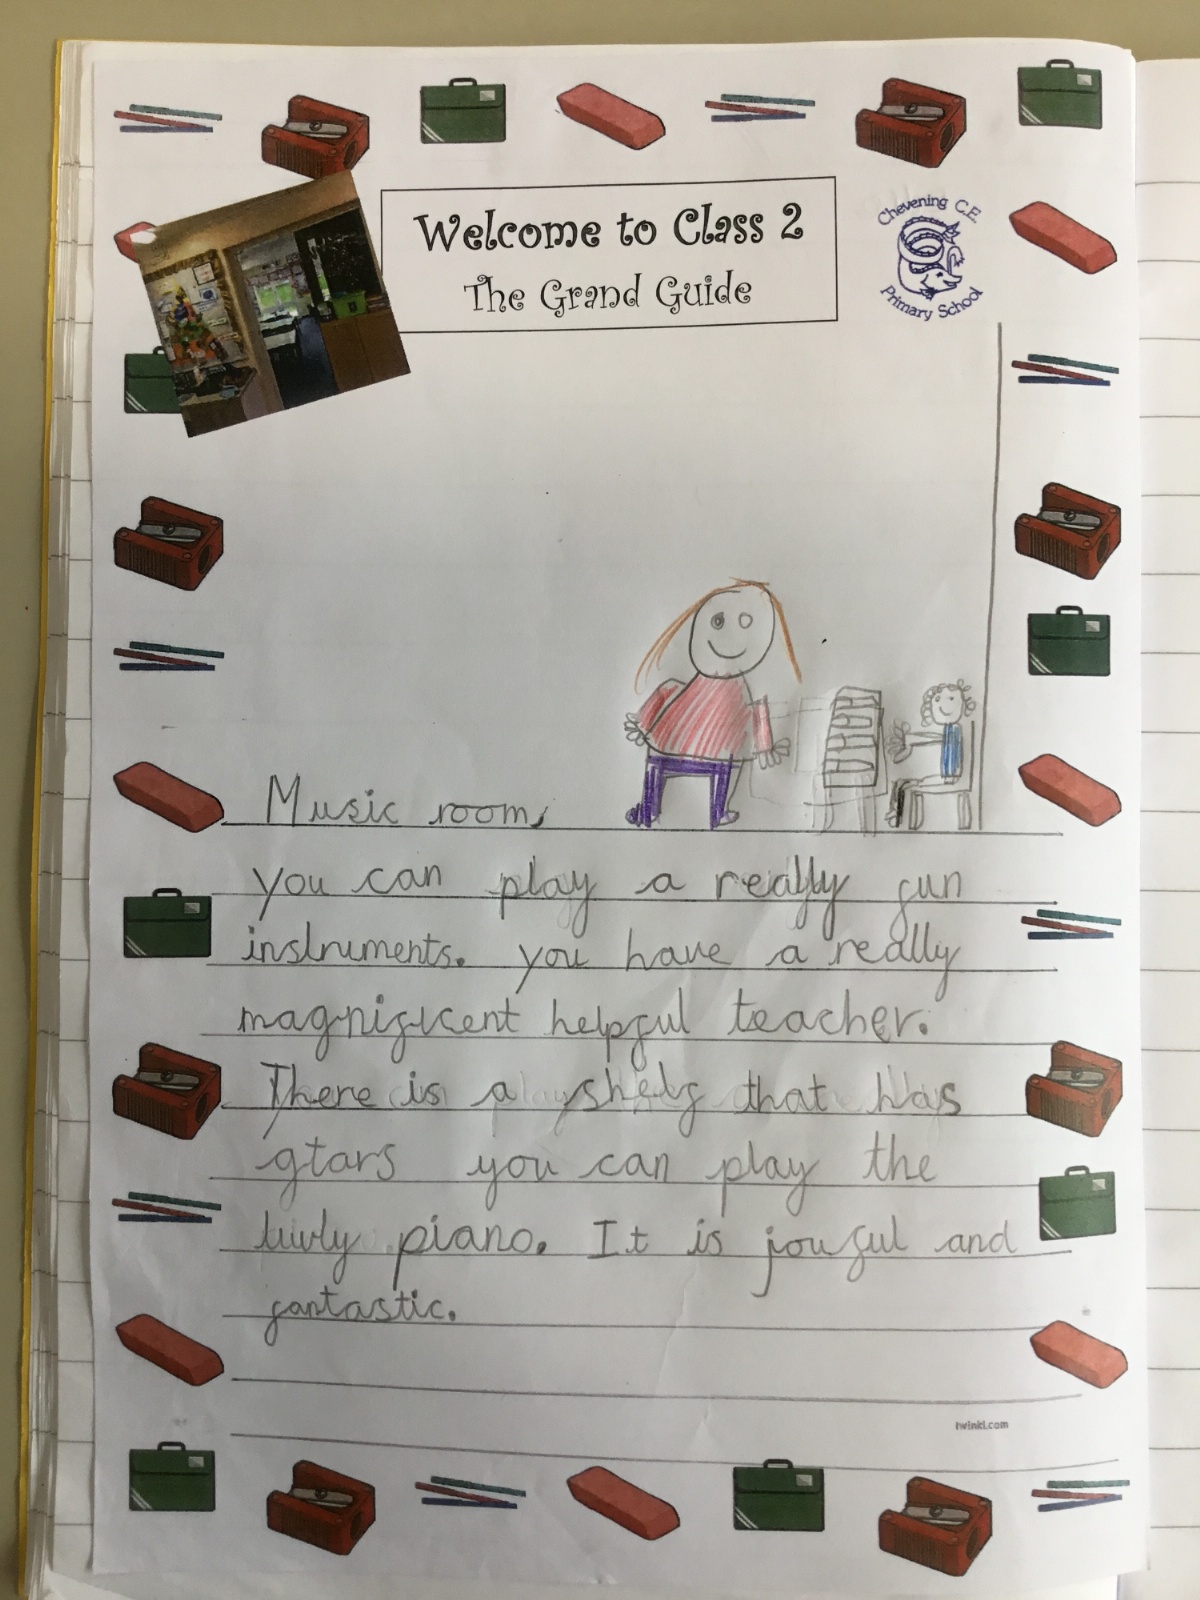 Welcome to Class 2
The Grand Guide
Chevening C.E.
Primary School
Music room,
you can play a really fun
instruments. you have a really
magnificent helpful teacher.
There is a shelf that has
gtars you can play the
luvly piano. It is jouful and
fantastic.
twinkl.com